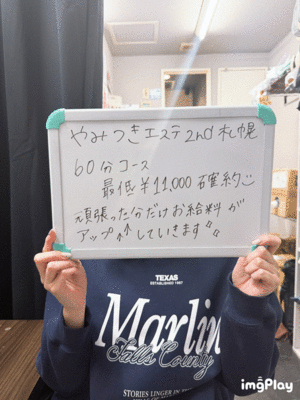 やみつきエステ2nd札幌
60分コース
最低¥11,000確約
頑張った分だけお給料が
アップ↑↑していきます
TEXAS
ESTABLISHED 1991
Marlin
Falls County
STORIES LINGER IN T
imgPlay